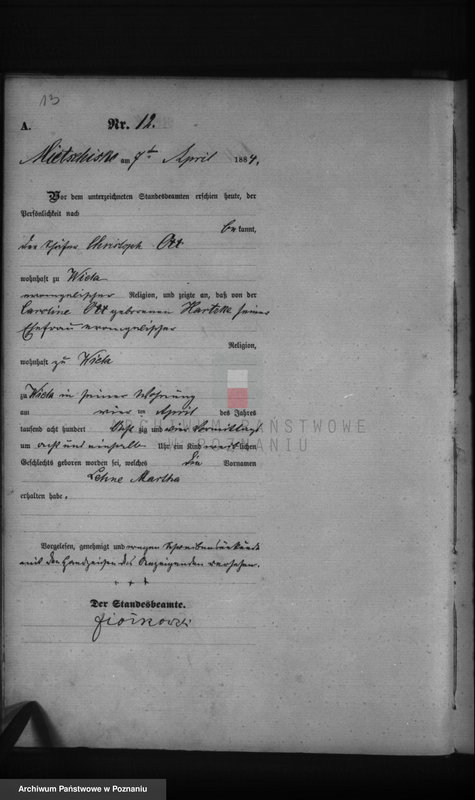 13
A.
Nr. 12.
Mietschisko am 7ten April 1884.
Vor dem unterzeichneten Standesbeamten erschien heute, der
Persönlichkeit nach
bekannt,
der Schäfer Christoph Ott
wohnhaft zu Wiela
evangelischer Religion, und zeigte an, daß von der
Caroline Ott geborenen seiner
Ehefrau evangelischer
Religion,
wohnhaft zu Wiela
zu Wiela in seiner Wohnung
am vier ten April des Jahres
tausend acht hundert acht zig und vier Vormittags
um acht und einhalb Uhr ein Kind weiblichen
Geschlechts geboren worden sei, welches die Vornamen
Martha
erhalten habe.
ARCHIWUM PAŃSTWOWE
W POZNANIU
Vorgelesen, genehmigt und wegen Schreibensunkunde
mit den Handzeichen des Anzeigenden versehen.
+ + +
Der Standesbeamte.
Archiwum Państwowe w Poznaniu